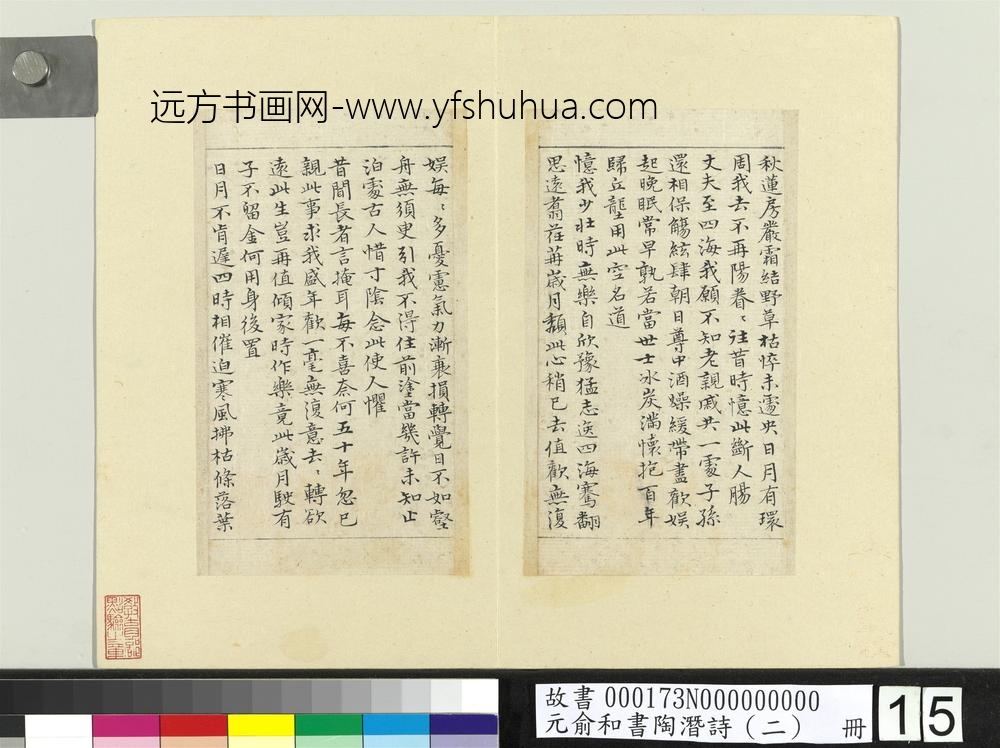 远方书画网-www.yfshuhua.com
秋蓮房嚴霜結野草枯悴未遽央日月有環
周我去不再陽眷〻往昔時憶此斷人腸
丈夫至四海我願不知老親戚共一處子孫
還相保觴絃肆朝日尊中酒燥緩帶盡歡娛
起晚眠常早孰若當世士冰炭滿懷抱百年
歸丘壟用此空名道
憶我少壯時無樂自欣豫猛志逸四海騫翮
思遠翥荏苒歲月頹此心稍已去值歡無復
娛每〻多憂慮氣力漸衰損轉覺日不如壑
舟無須更引我不得住前塗當幾許未知止
泊處古人惜寸陰念此使人懼
昔聞長者言掩耳每不喜奈何五十年忽已
親此事求我盛年歡一毫無復意去〻轉欲
遠此生豈再值傾家時作樂竟此歲月駛有
子不留金何用身後置
日月不肯遲四時相催迫寒風拂枯條落葉
故書 000173N000000000
元俞和書陶潛詩（二） 冊
15